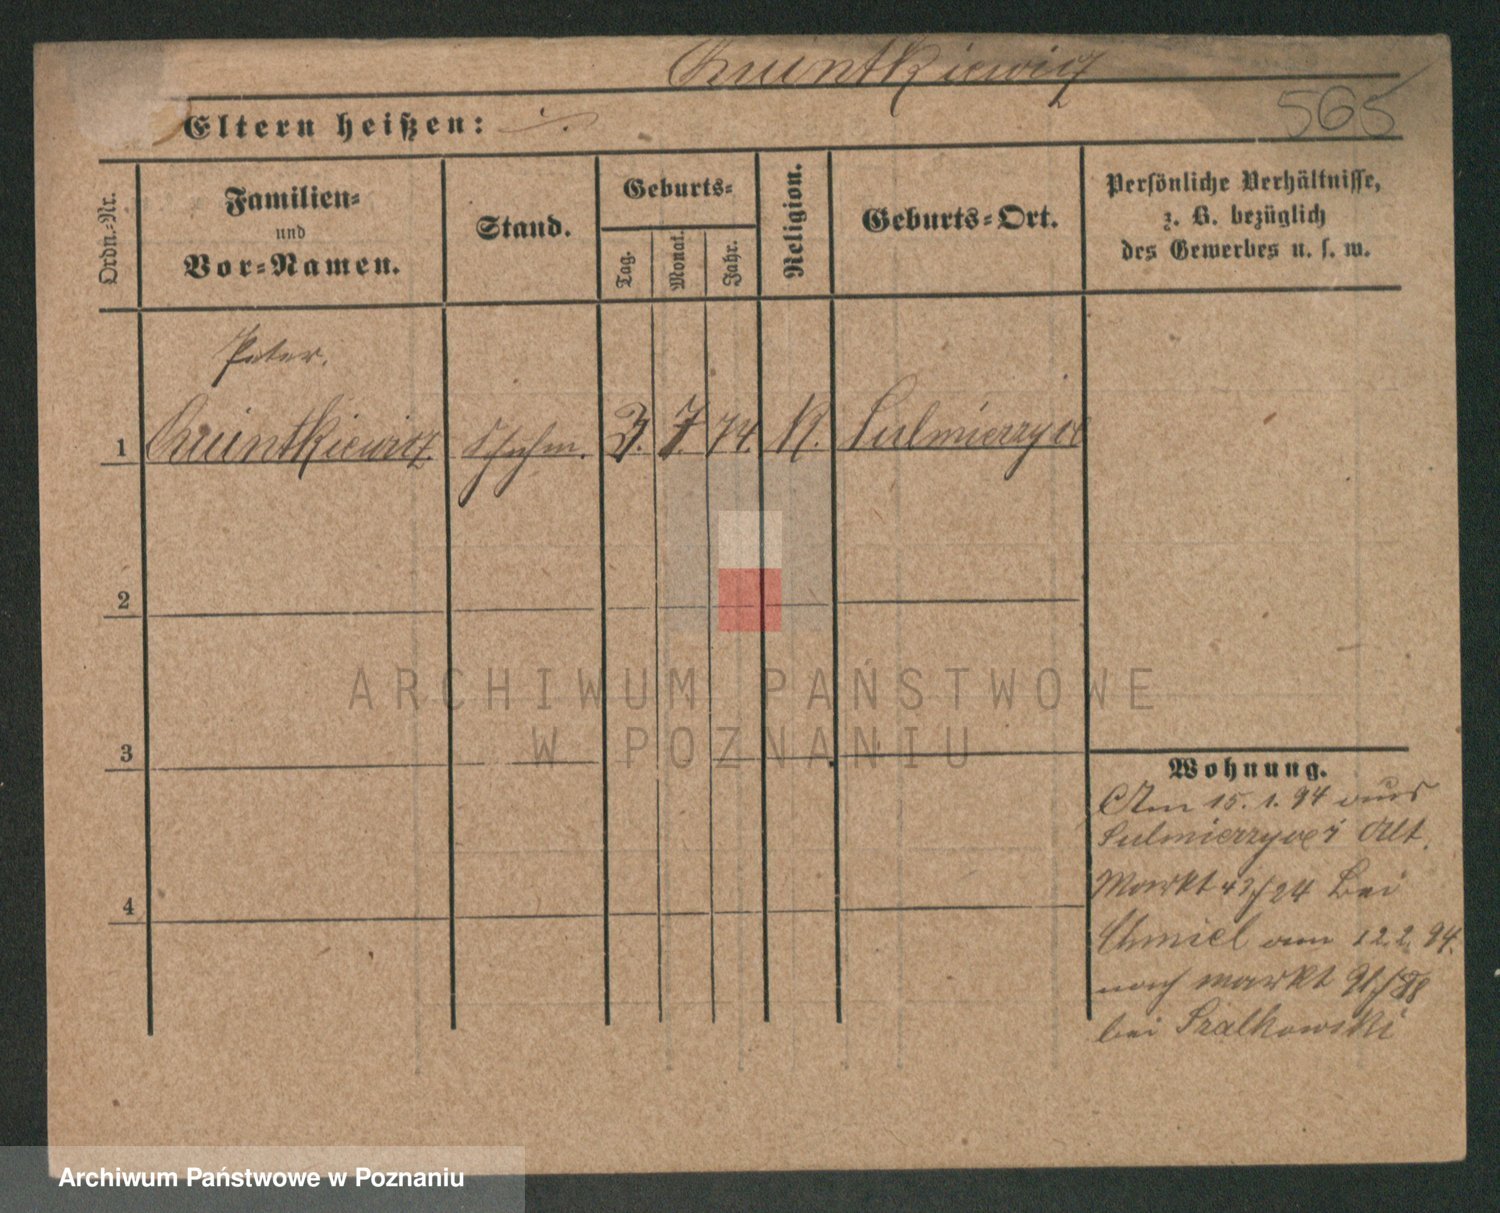 Kwintkiewicz
565
Eltern heißen: ./.
Ordn.-Nr.
Familien-
und
Vor-Namen.
Stand.
Geburts-
Tag.
Monat.
Jahr.
Religion.
Geburts-Ort.
Persönliche Verhältnisse,
z. B. bezüglich
des Gewerbes u. s. w.
Peter.
1 Kwintkiewicz. Schuhm. 3. 7. 74. K. Sulmierzyce
2
3
4
Wohnung.
Am 15.1.94 aus
Sulmierzyce Alt.
Markt 43/24 bei
Chmiel am 12.2.94.
nach Markt 91/88
bei Szalkowski
ARCHIWUM PAŃSTWOWE
W POZNANIU
Archiwum Państwowe w Poznaniu